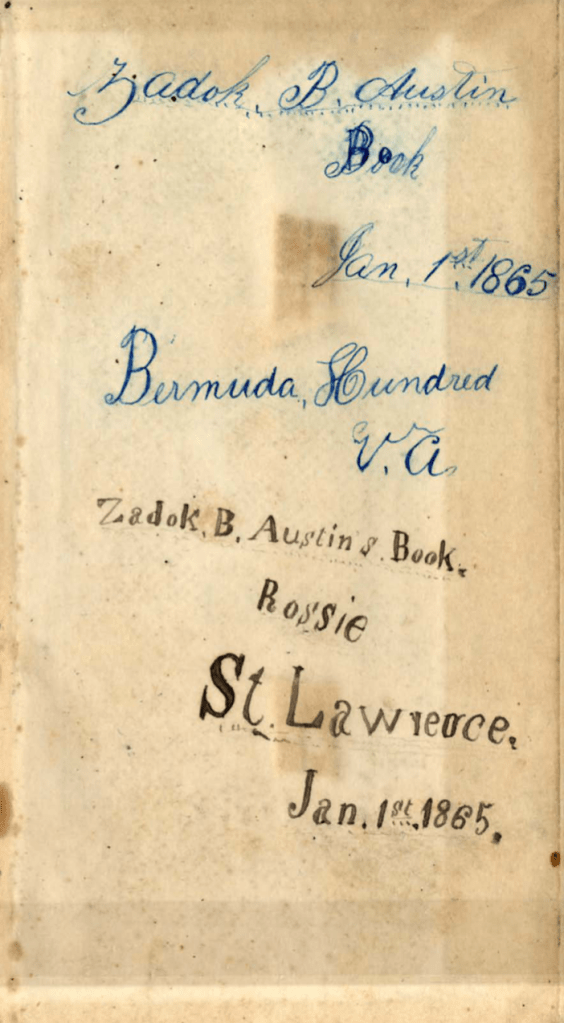 Zadok. B. Austin
Book
Jan. 1st. 1865
Bermuda, Hundred
V. A.
Zadok. B. Austin's Book.
Rossie
St. Lawrence.
Jan. 1st. 1865.